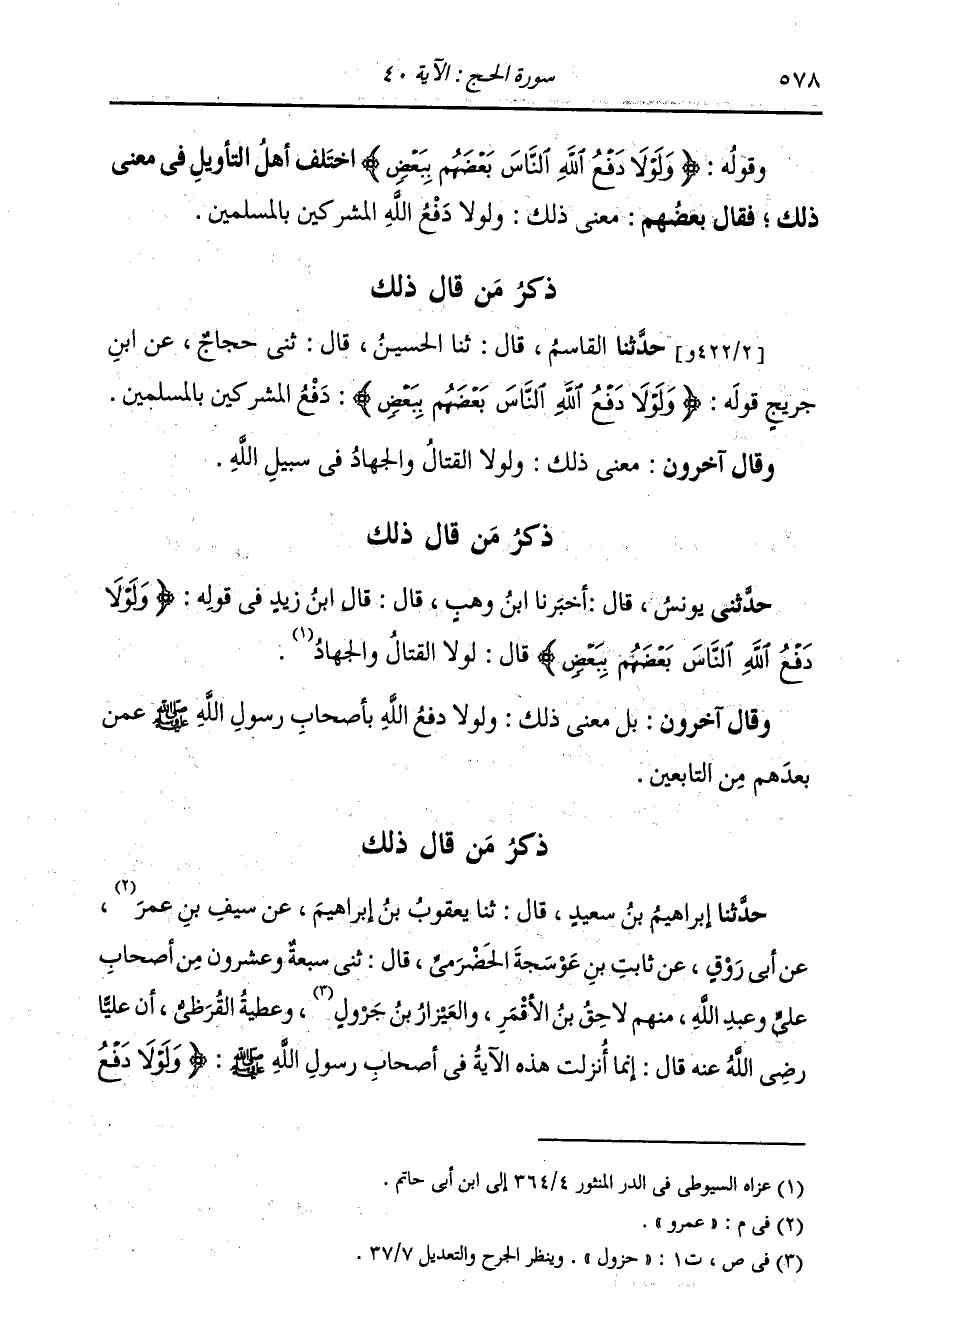 ٥٧٨ سورة الحج : الآية ٤٠
وقولُه : ﴿ وَلَوْلَا دَفْعُ ٱللَّهِ ٱلنَّاسَ بَعْضَهُم بِبَعْضٍ ﴾ اختَلف أهلُ التأويلِ فى معنى
ذلك ؛ فقال بعضُهم : معنى ذلك : ولولا دَفْعُ اللَّهِ المشركين بالمسلمين .
ذكرُ مَن قال ذلك
[٤٢٢/٢و] حدَّثنا القاسمُ ، قال : ثنا الحسينُ ، قال : ثنى حجاجٌ ، عن ابنِ
جريجٍ قولَه : ﴿ وَلَوْلَا دَفْعُ ٱللَّهِ ٱلنَّاسَ بَعْضَهُم بِبَعْضٍ ﴾ : دَفْعُ المشركين بالمسلمين .
وقال آخرون : معنى ذلك : ولولا القتالُ والجهادُ فى سبيلِ اللَّهِ .
ذكرُ مَن قال ذلك
حدَّثنى يونسُ ، قال : أخبَرنا ابنُ وهبٍ ، قال : قال ابنُ زيدٍ فى قولِه : ﴿ وَلَوْلَا
دَفْعُ ٱللَّهِ ٱلنَّاسَ بَعْضَهُم بِبَعْضٍ ﴾ قال : لولا القتالُ والجهادُ(١) .
وقال آخرون : بل معنى ذلك : ولولا دفعُ اللَّهِ بأصحابِ رسولِ اللَّهِ ﷺ عمن
بعدَهم مِن التابعين .
ذكرُ مَن قال ذلك
حدَّثنا إبراهيمُ بنُ سعيدٍ ، قال : ثنا يعقوبُ بنُ إبراهيمَ ، عن سيفِ بنِ عمرَ(٢) ،
عن أبى رَوْقٍ ، عن ثابتِ بنِ عَوْسَجةَ الحَضْرَمىِّ ، قال : ثنى سبعةٌ وعشرون مِن أصحابِ
علىٍّ وعبدِ اللَّهِ ، منهم لاحِقُ بنُ الأقْمَرِ ، والعَيْزارُ بنُ جَرْولٍ(٣) ، وعطيةُ القُرَظىُّ ، أن عليًّا
رضِى اللَّهُ عنه قال : إنما أُنزلت هذه الآيةُ فى أصحابِ رسولِ اللَّهِ ﷺ : ﴿ وَلَوْلَا دَفْعُ
(١) عزاه السيوطى فى الدر المنثور ٣٦٤/٤ إلى ابن أبى حاتم .
(٢) فى م : « عمرو » .
(٣) فى ص ، ت١ : « حزول » . وينظر الجرح والتعديل ٣٧/٧ .